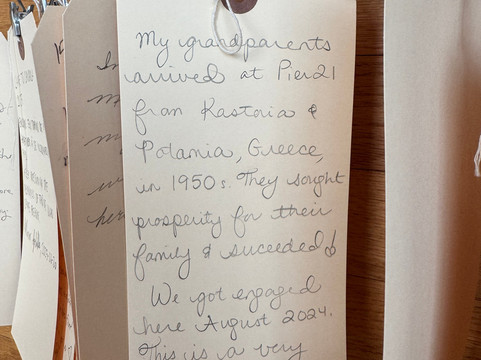 My grandparents
arrived at Pier 21
from Kastoria &
Potamia, Greece,
in 1950s. They sought
prosperity for their
family & succeeded
We got engaged
here August 2024.
This is a very